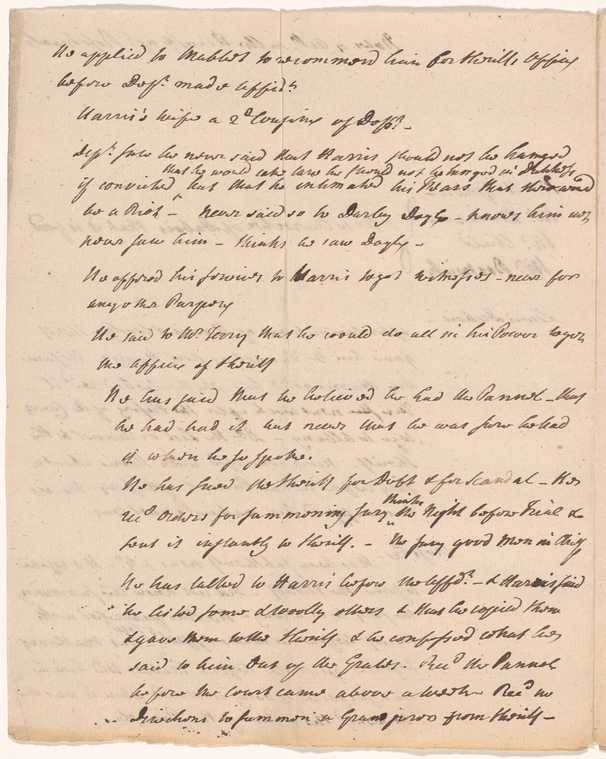 He applied to Mabbet to recommend him for Sherifs Office
before Depᵗ. made affidᵗ
Harris's Wife a 2ᵈ Cousine of Depᵗ. –
Depᵗ. says he never said that Harris should not be hanged
that he would take care he should not be hanged in Dutchess
if convicted but that he intimated his Fears that there would
be a Riot – never said so to Darby Doyle – knows him not
never saw him – thinks he saw Doyle –
He offered his services to Harris to get witnesses – never for
any other Purpose
He said to Mʳ. Terry that he would do all in his Power to get
the Office of Sheriff
He has said that he believed he had the Pannel – that
he had had it but never that he was sure he had
it when he so spoke.
He has sued the Sheriff for Debt & for Scandal – He
thinks
recᵈ Orders for summoning Jury the Night before Trial &
sent it instantly to Sheriff. – The Jury good Men in
He has talked to Harris before the affdᵗ. – & Harris said
he listed some & Woolly others & that he copied them
& gave them to the Sheriff & he confessed what he
said to him out of the Grates. Recᵈ the Pannel
before the Court came above a week – Recᵈ no
directions to summon a Grand from Sheriff –